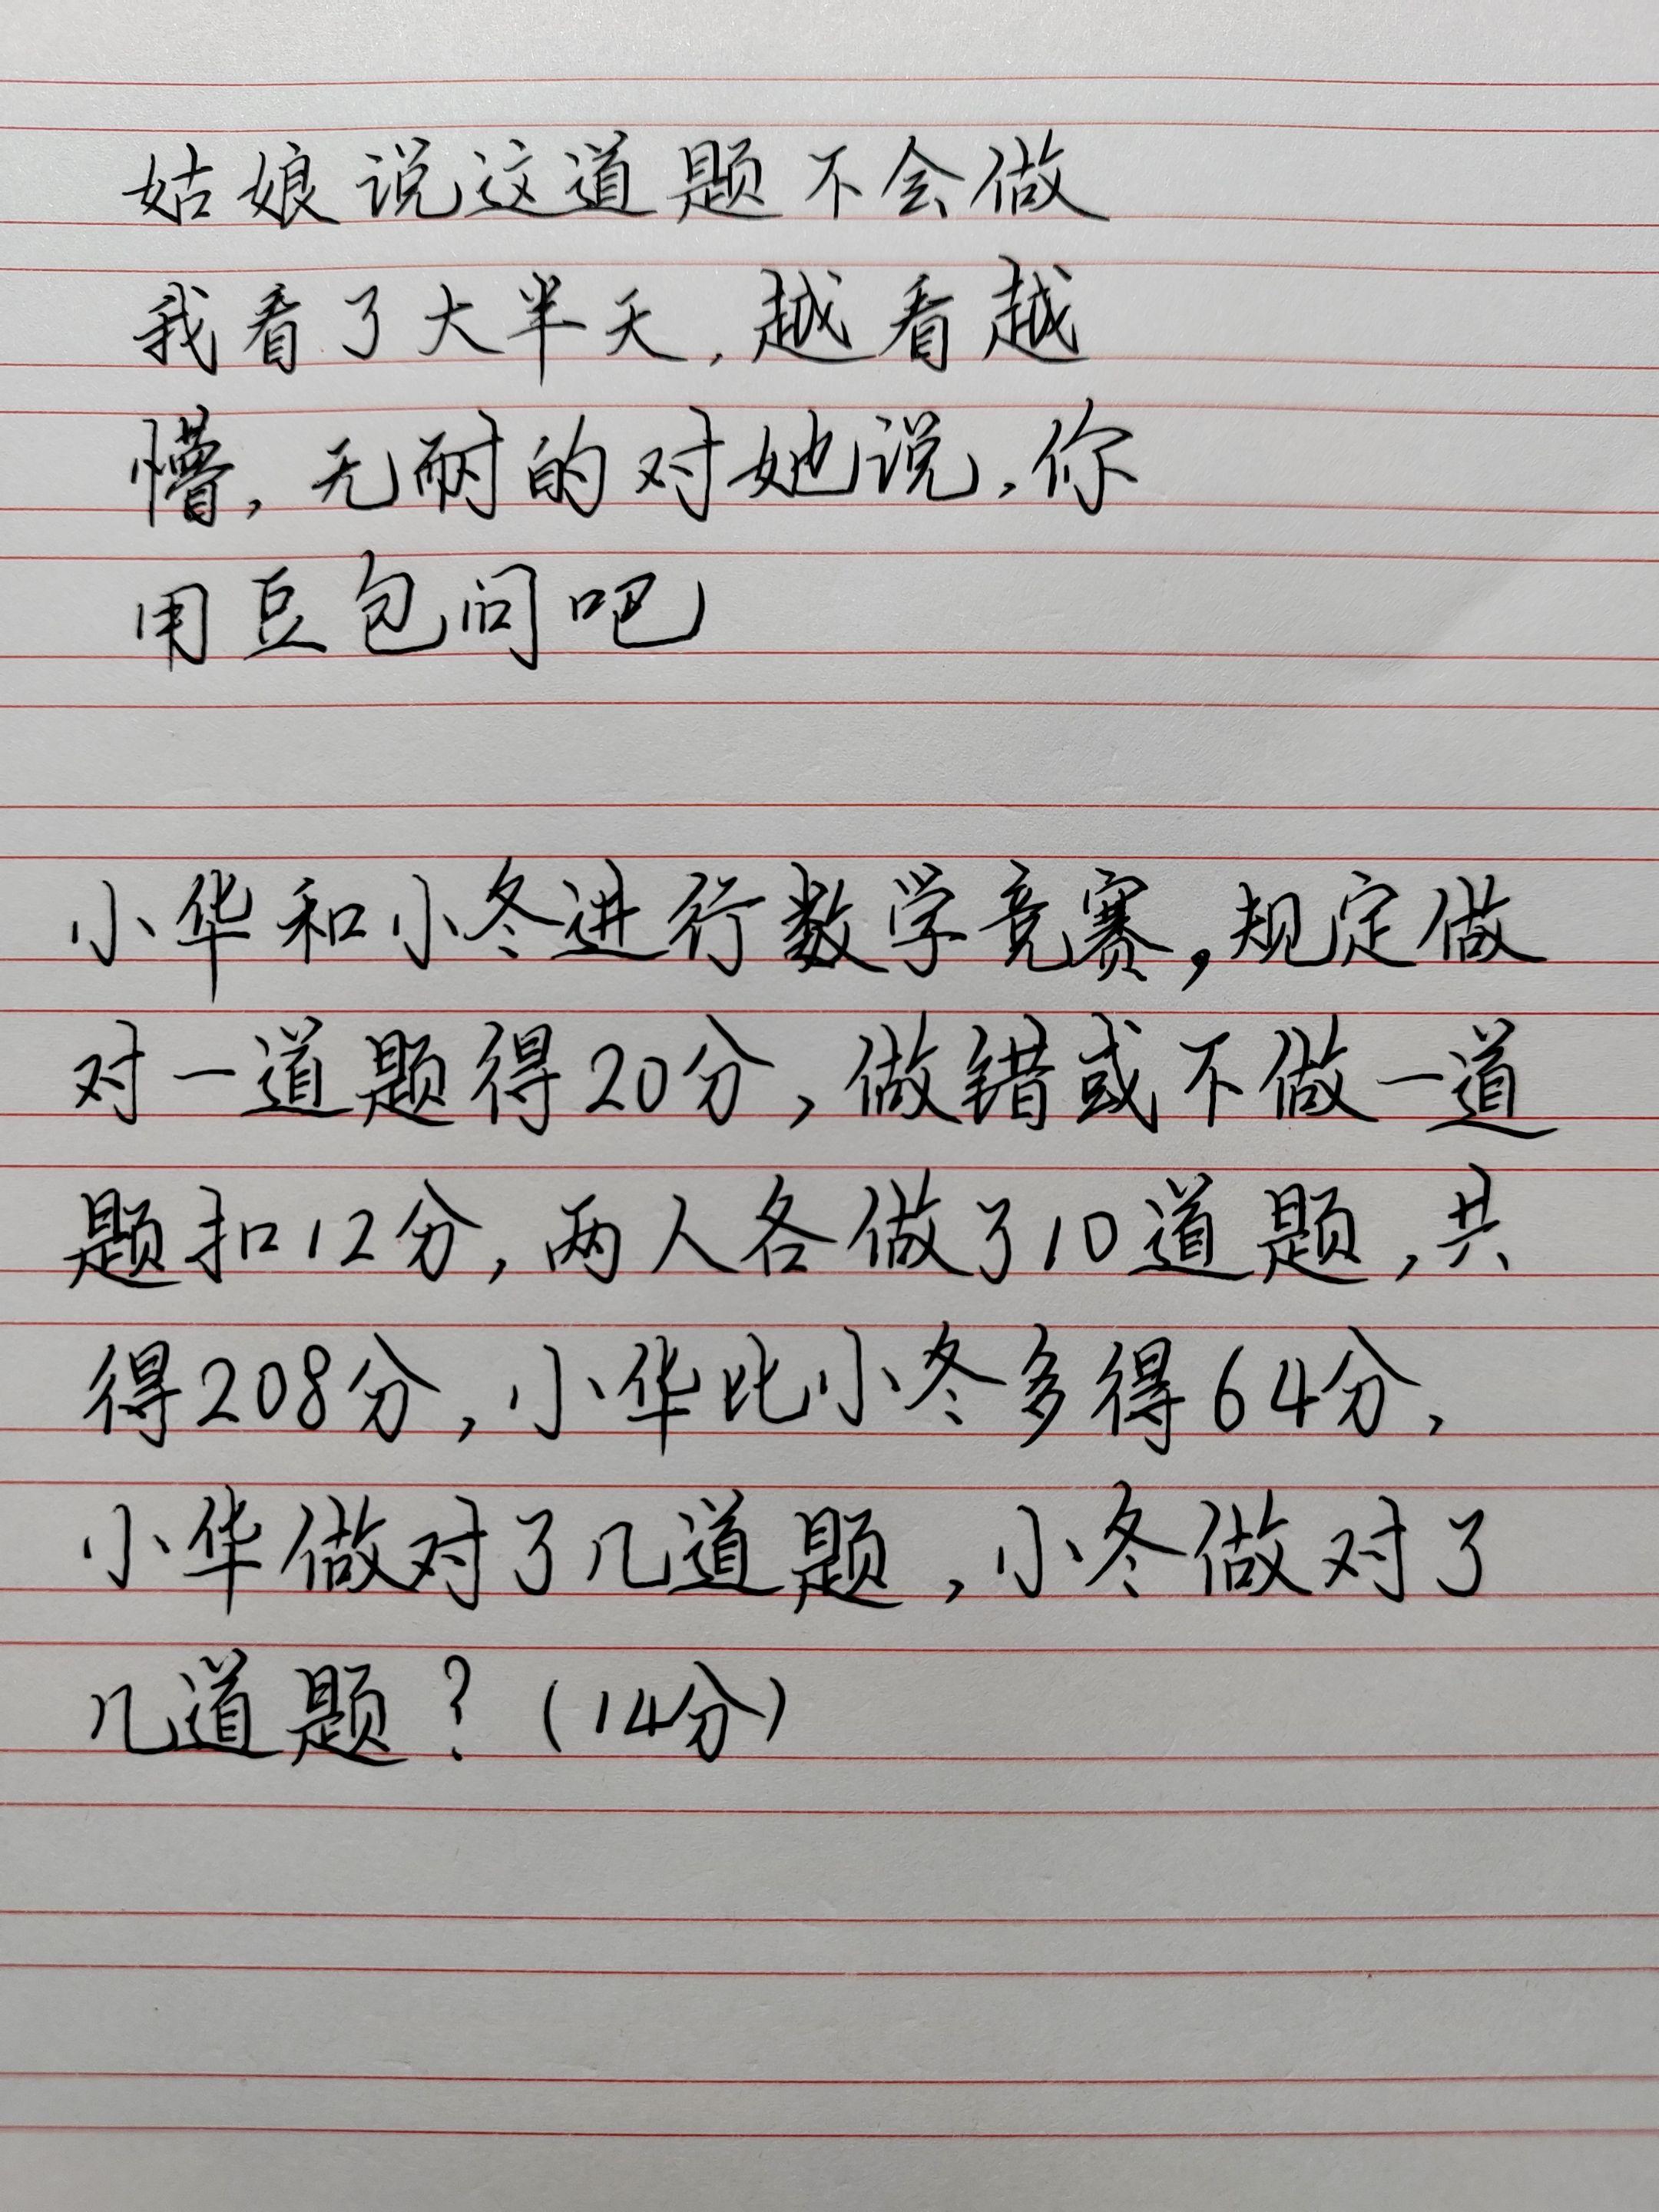 姑娘说这道题不会做
我看了大半天,越看越
懵,无耐的对她说,你
用豆包问吧
小华和小冬进行数学竞赛,规定做
对一道题得20分,做错或不做一道
题扣12分,两人各做了10道题,共
得208分,小华比小冬多得64分,
小华做对了几道题,小冬做对了
几道题?(14分)